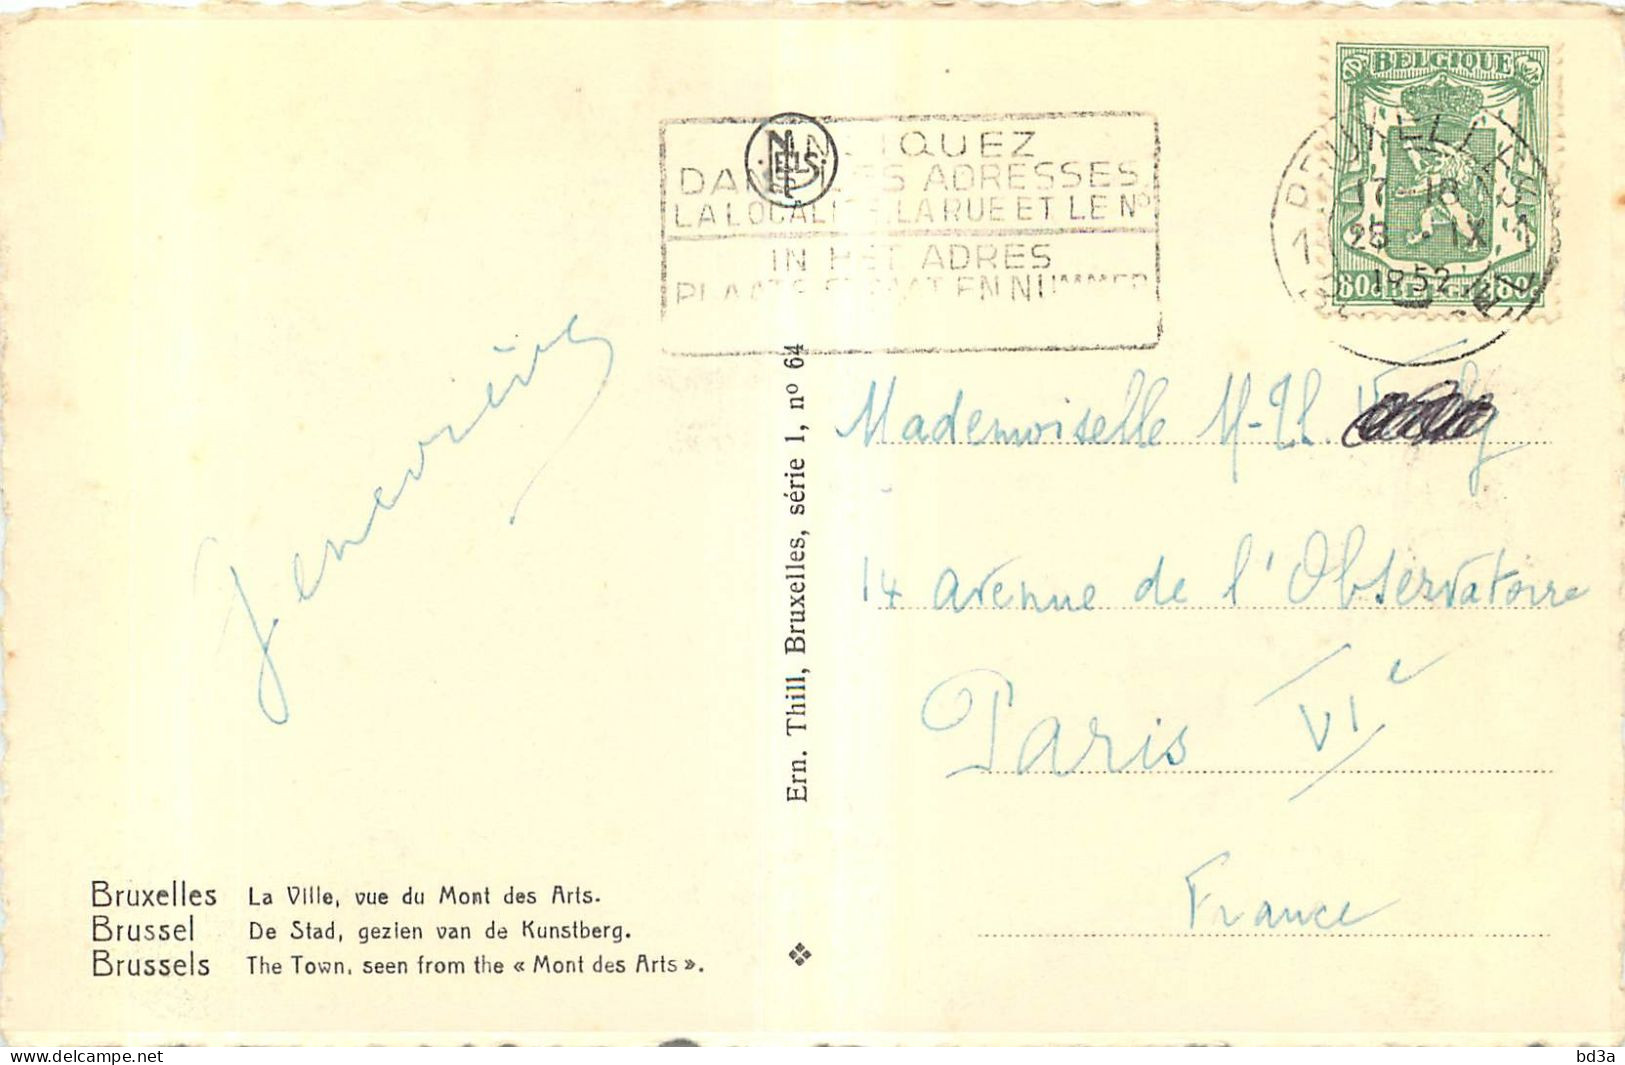 BELGIQUE
BRUXELLES
1 1
17-18
25 · IX
1952
80c BELGIË 80c
NELS
INDIQUEZ
DANS LES ADRESSES
LA LOCALITE, LA RUE ET LE No
IN HET ADRES
PLAATS STRAAT EN NUMMER
Genevière
Ern. Thill, Bruxelles, série 1, nº 64
Mademoiselle M-Th.
14 avenue de l'Observatoire
Paris VIe
France
Bruxelles La Ville, vue du Mont des Arts.
Brussel De Stad, gezien van de Kunstberg.
Brussels The Town, seen from the « Mont des Arts ».
www.delcampe.net
bd3a